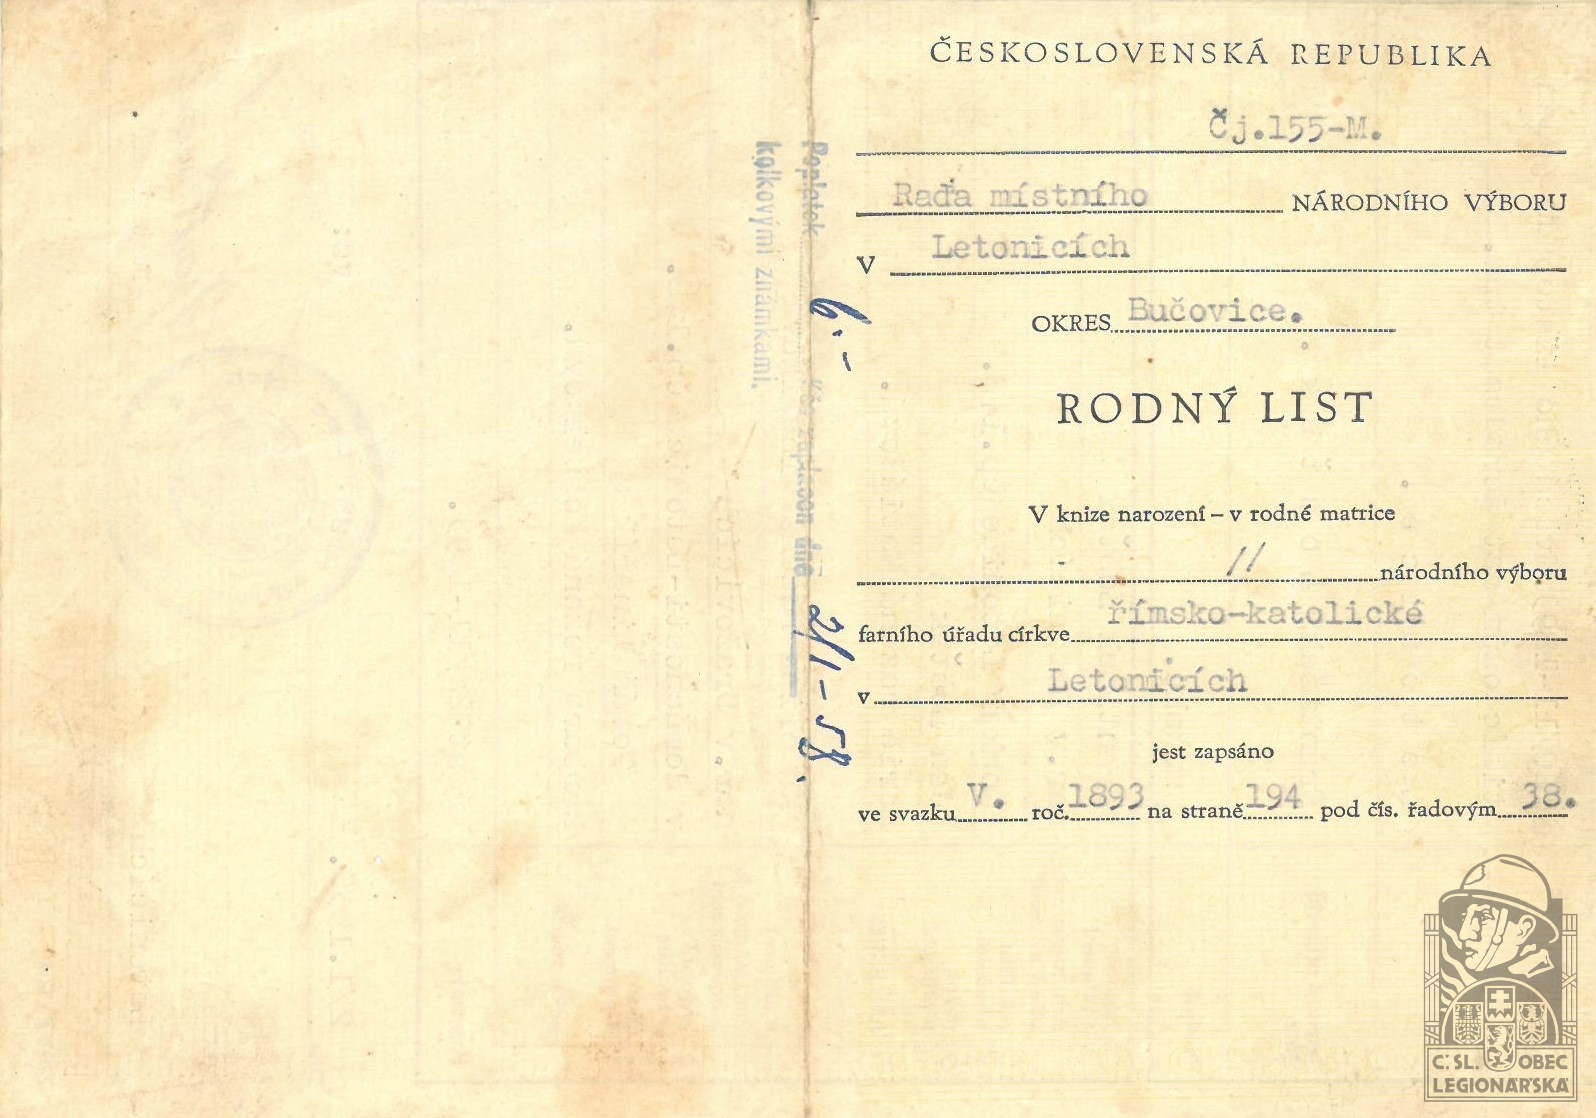 ČESKOSLOVENSKÁ REPUBLIKA
Čj.155-M.
Rada místního NÁRODNÍHO VÝBORU
V Letonicích
OKRES Bučovice.
RODNÝ LIST
V knize narození – v rodné matrice
- // národního výboru
farního úřadu církve římsko-katolické
v Letonicích
jest zapsáno
ve svazku V. roč. 1893 na straně 194 pod čís. řadovým 38.
Poplatek 6.- Kčs zaplacen dne 2/1-58.
kolkovými známkami.
Č. SL. OBEC
LEGIONÁŘSKÁ